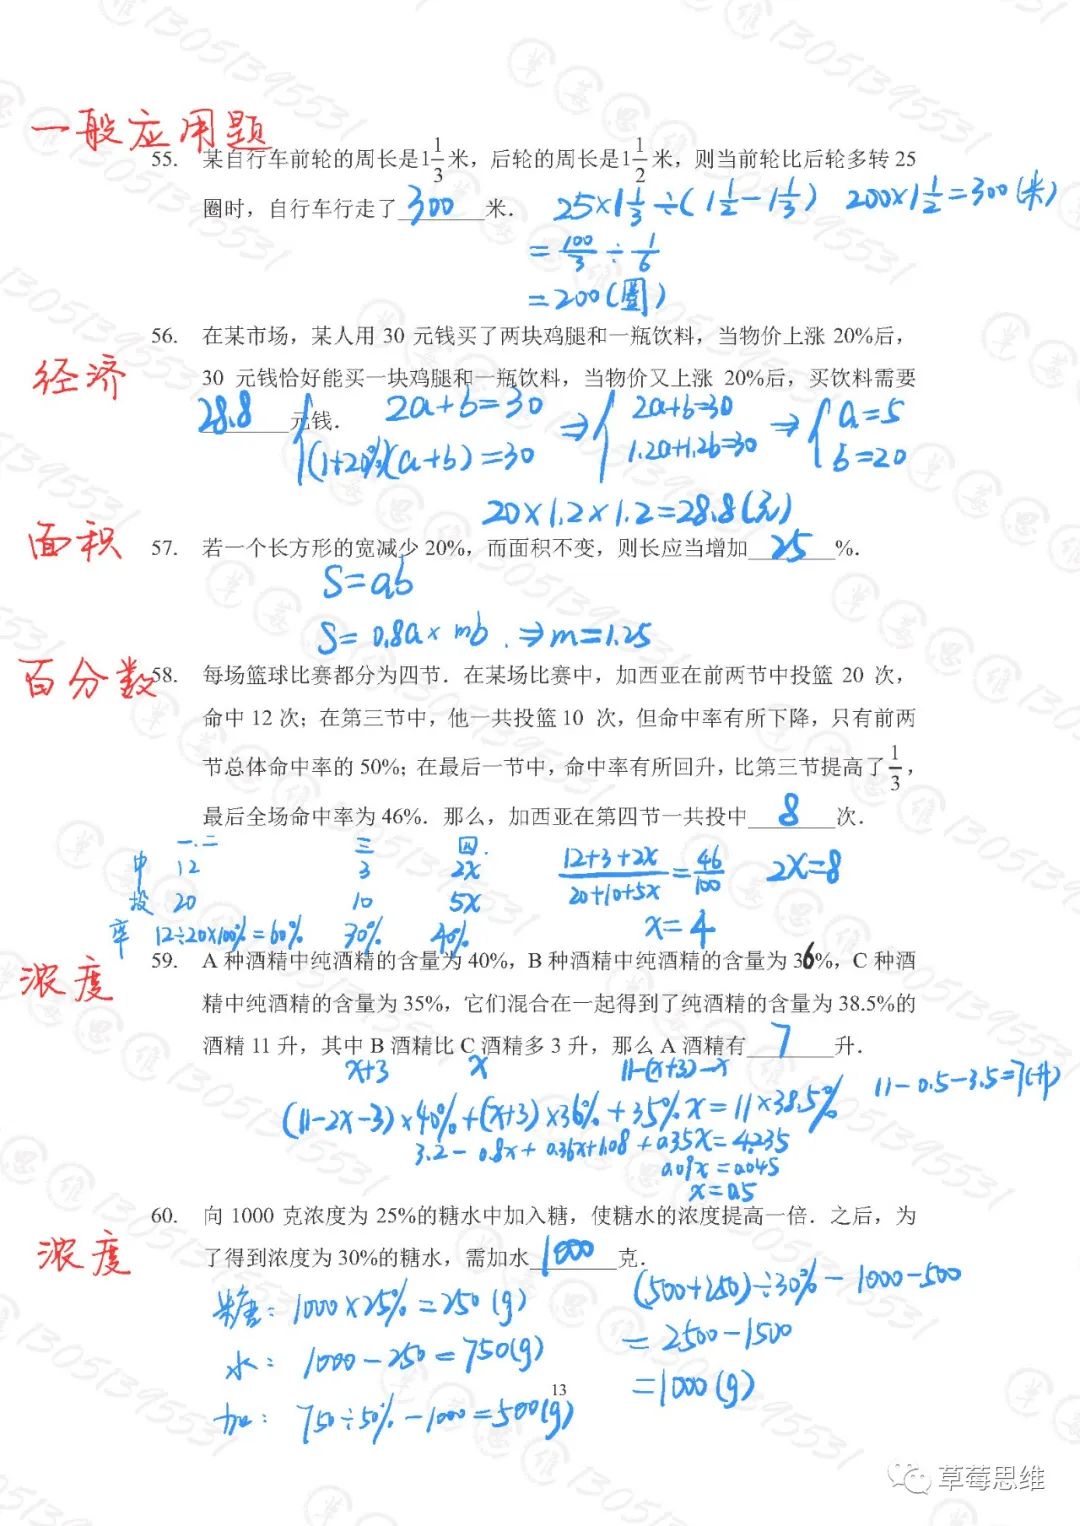 一般应用题
55. 某自行车前轮的周长是1 1/3 米，后轮的周长是1 1/2 米，则当前轮比后轮多转 25
圈时，自行车行走了 300 米．
25×1 1/3÷(1 1/2－1 1/3) 200×1 1/2=300(米)
= 100/3 ÷ 1/6
=200(圈)
56. 在某市场，某人用 30 元钱买了两块鸡腿和一瓶饮料，当物价上涨 20%后，
经济
30 元钱恰好能买一块鸡腿和一瓶饮料，当物价又上涨 20%后，买饮料需要
28.8 元钱．
{2a+b=30 ⇒ {2a+b=30 ⇒ {a=5
(1+20%)(a+b)=30 1.2a+1.2b=30 b=20
20×1.2×1.2=28.8(元)
面积
57. 若一个长方形的宽减少 20%，而面积不变，则长应当增加 25 %．
S=ab
S=0.8a×mb．⇒m=1.25
百分数
58. 每场篮球比赛都分为四节．在某场比赛中，加西亚在前两节中投篮 20 次，
命中 12 次；在第三节中，他一共投篮 10 次，但命中率有所下降，只有前两
节总体命中率的 50%；在最后一节中，命中率有所回升，比第三节提高了 1/3，
最后全场命中率为 46%．那么，加西亚在第四节一共投中 8 次．
一.二 三 四.
中 12 3 2x
投 20 10 5x
率 12÷20×100%=60% 30% 40%
(12+3+2x)/(20+10+5x)=46/100 2x=8
x=4
浓度
59. A 种酒精中纯酒精的含量为 40%，B 种酒精中纯酒精的含量为 36%，C 种酒
精中纯酒精的含量为 35%，它们混合在一起得到了纯酒精的含量为 38.5%的
酒精 11 升，其中 B 酒精比 C 酒精多 3 升，那么 A 酒精有 7 升．
x+3 x 11-(x+3)-x
11－0.5－3.5=7(升)
(11-2x-3)×40%+(x+3)×36%+35%x=11×38.5%
3.2－0.8x+0.36x+1.08+0.35x=4.235
0.09x=0.045
x=0.5
60. 向 1000 克浓度为 25%的糖水中加入糖，使糖水的浓度提高一倍．之后，为
浓度
了得到浓度为 30%的糖水，需加水 1000 克．
糖：1000×25%=250(g)
水：1000－250=750(g)
加：750÷50%－1000=500(g)
(500+250)÷30%－1000-500
=2500－1500
=1000(g)
13
草莓思维
草莓思维13051395531